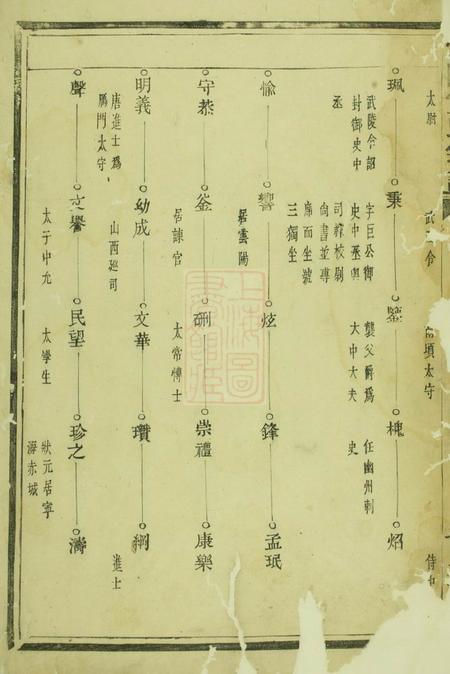 太尉
武
令
項太守
侍中
珮
秉
鑒
槐
炤
武陵令詔
封御史中
丞
字巨公御
史中丞與
司隸校尉
尚書並專
席而坐號
三獨坐
襲父爵爲
大中大夫
任幽州刺
史
愉
響
炫
鋒
孟珉
居雲陽
守恭
釜
硎
崇禮
康樂
居諫官
太常博士
明義
幼成
文華
瓚
綱
唐進士爲
鴈門太守
山西巡司
進士
聲
文譽
民望
珍之
濤
太子中允
太學生
狀元居寧
海赤城
上海圖書館藏